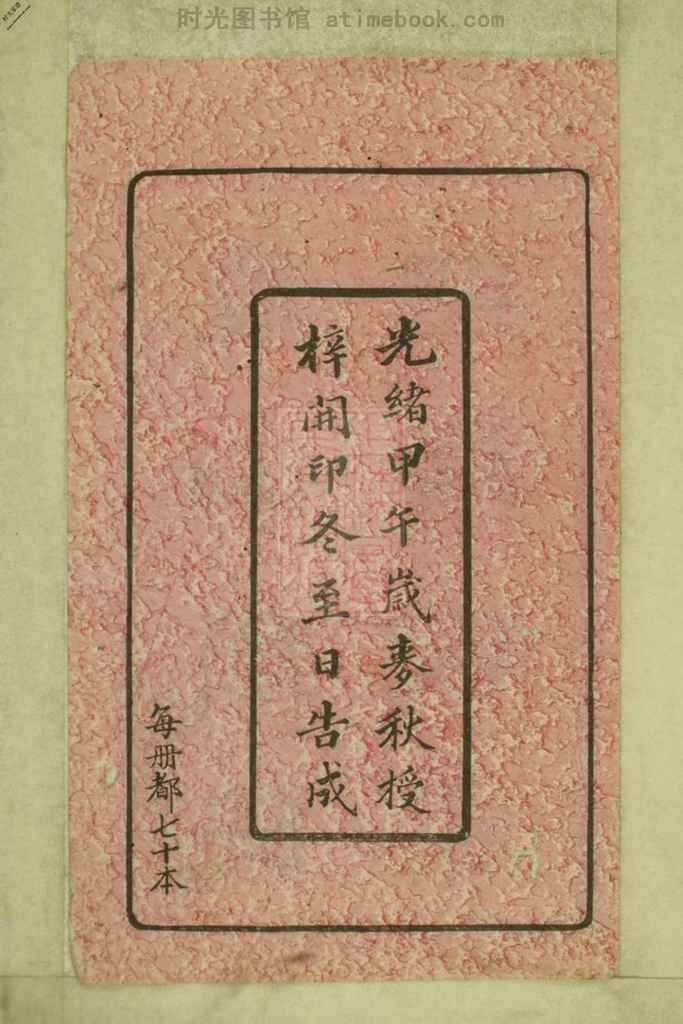 时光图书馆 atimebook.com
光緒甲午歲麥秋授
梓開印冬至日告成
每册都七十本